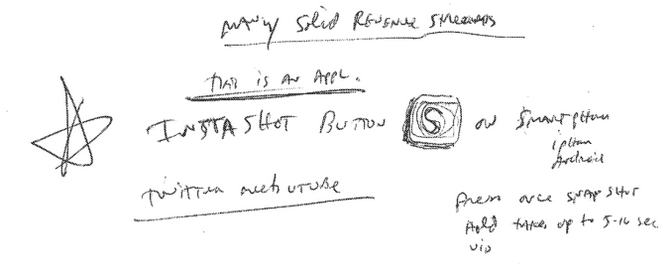 MANY Solid REVENUE STREAMS
THIS IS AN APPL.
INSTA SHOT BUTTON S ON SMARTPHON
iphon
Android
TWITTER meets UTUBE
press once SNAPSHOT
Hold takes up to 5-10 sec
vid